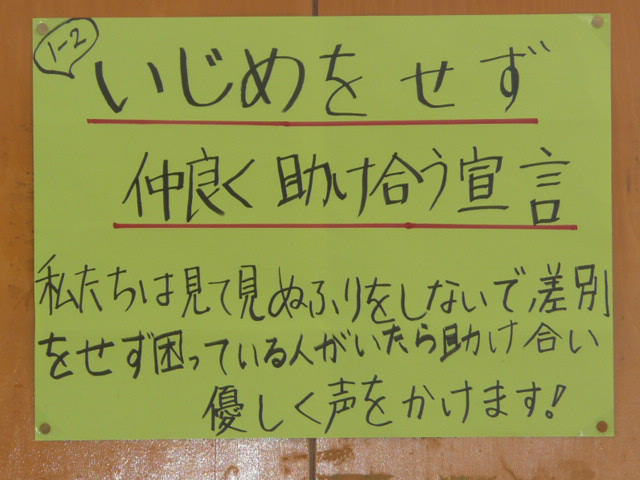 1-2
いじめをせず
仲良く助け合う宣言
私たちは見て見ぬふりをしないで、差別
をせず困っている人がいたら助け合い
優しく声をかけます!